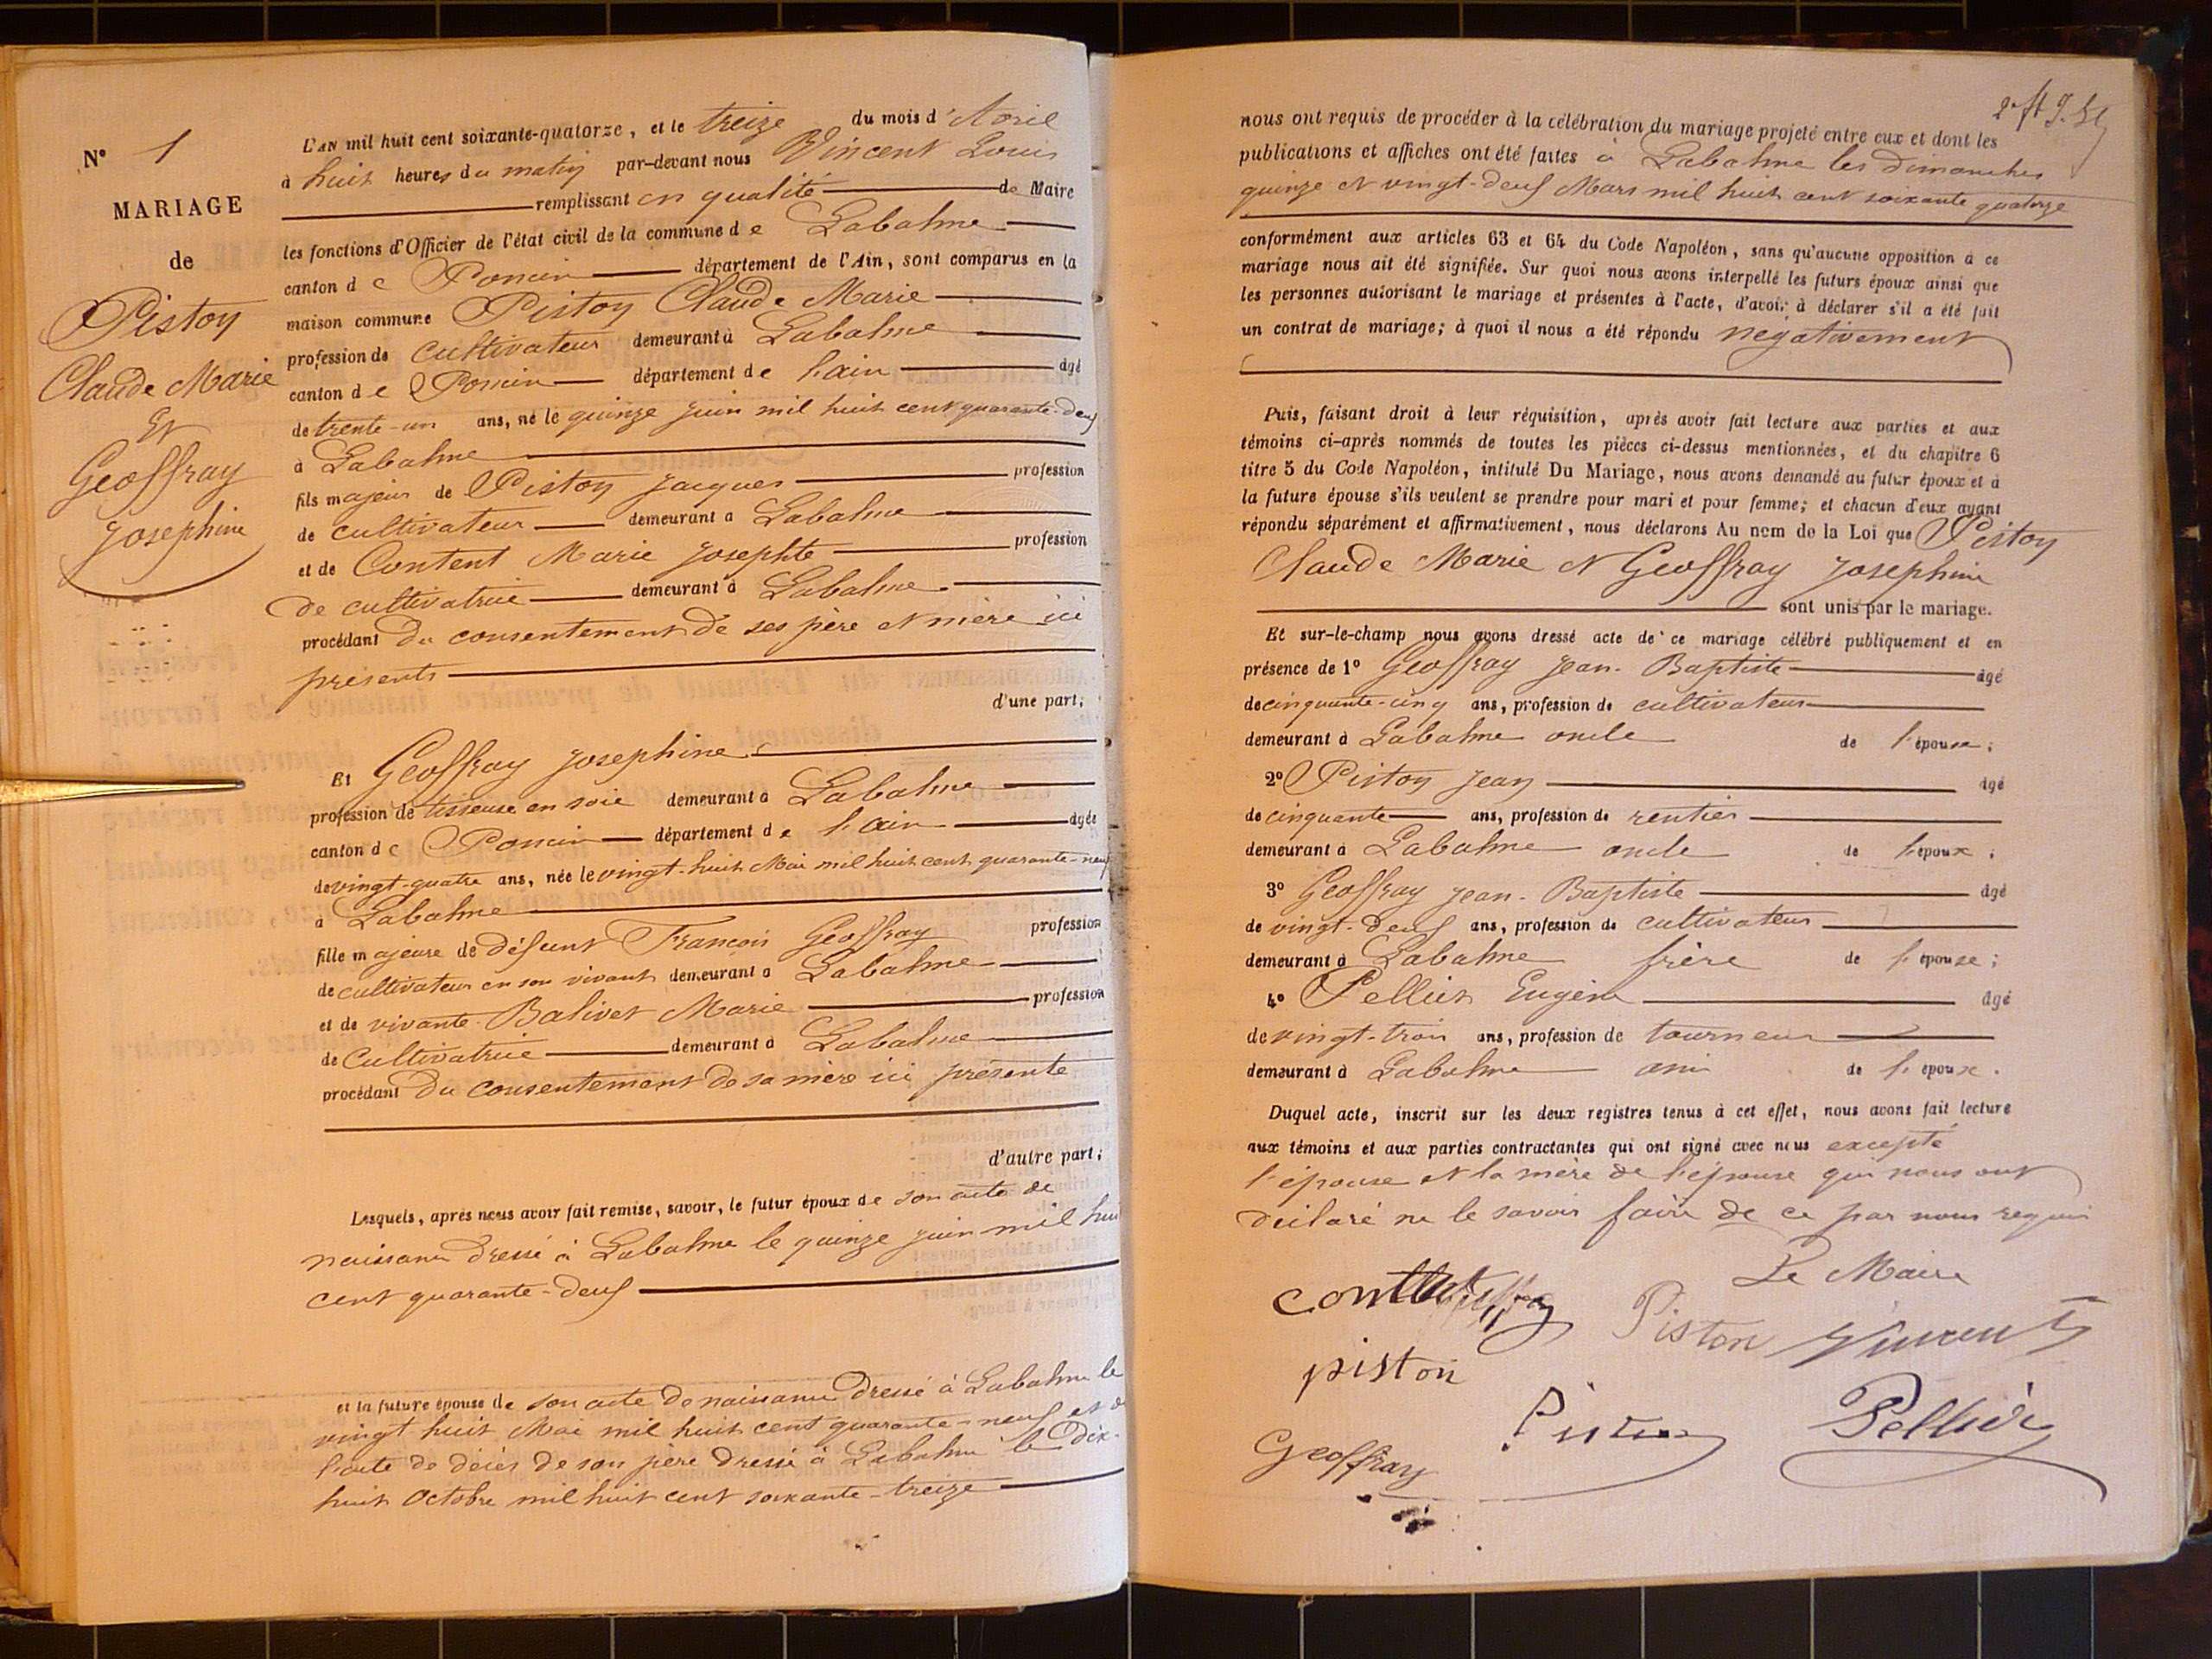 N° 1
MARIAGE
de
Piston
Claude Marie
Et
Geoffray
Josephine
L'AN mil huit cent soixante-quatorze, et le treize du mois d'Avril
à huit heures du matin par-devant nous Vincent Louis
remplissant en qualité de Maire
les fonctions d'Officier de l'état civil de la commune de Labalme
canton de Poncin département de l'Ain, sont comparus en la
maison commune Piston Claude Marie
profession de cultivateur demeurant à Labalme
canton de Poncin département de l'ain âgé
de trente-un ans, né le quinze juin mil huit cent quarante-deux
à Labalme
fils majeur de Piston Jacques profession
de cultivateur demeurant à Labalme
et de Content Marie Josephte profession
de cultivatrice demeurant à Labalme
procédant du consentement de ses père et mère ici
présents
d'une part;
Et Geoffray Josephine
profession de tisseuse en soie demeurant à Labalme
canton de Poncin département de l'Ain âgée
de vingt-quatre ans, née le vingt-huit Mai mil huit cent quarante-neuf
à Labalme
fille majeure de défunt François Geoffray profession
de cultivateur en son vivant demeurant à Labalme
et de vivante Balivet Marie profession
de Cultivatrice demeurant à Labalme
procédant du consentement de sa mère ici présente
d'autre part;
Lesquels, après nous avoir fait remise, savoir, le futur époux de son acte de
naissance dressé à Labalme le quinze juin mil huit
cent quarante-deux
et la future épouse de son acte de naissance dressé à Labalme le
vingt huit Mai mil huit cent quarante-neuf et de
l'acte de décès de son père dressé à Labalme le dix-
huit Octobre mil huit cent soixante-treize
nous ont requis de procéder à la célébration du mariage projeté entre eux et dont les
publications et affiches ont été faites à Labalme les dimanches
quinze et vingt-deux Mars mil huit cent soixante quatorze
conformément aux articles 63 et 64 du Code Napoléon, sans qu'aucune opposition à ce
mariage nous ait été signifiée. Sur quoi nous avons interpellé les futurs époux ainsi que
les personnes autorisant le mariage et présentes à l'acte, d'avoir à déclarer s'il a été fait
un contrat de mariage; à quoi il nous a été répondu negativement
Puis, faisant droit à leur réquisition, après avoir fait lecture aux parties et aux
témoins ci-après nommés de toutes les pièces ci-dessus mentionnées, et du chapitre 6
titre 5 du Code Napoléon, intitulé Du Mariage, nous avons demandé au futur époux et à
la future épouse s'ils veulent se prendre pour mari et pour femme; et chacun d'eux ayant
répondu séparément et affirmativement, nous déclarons Au nom de la Loi que Piston
Claude Marie et Geoffray Josephine
sont unis par le mariage.
Et sur-le-champ nous avons dressé acte de ce mariage célébré publiquement et en
présence de 1° Geoffray Jean-Baptiste âgé
de cinquante-cinq ans, profession de cultivateur
demeurant à Labalme oncle de l'épouse;
2° Piston Jean âgé
de cinquante ans, profession de rentier
demeurant à Labalme oncle de l'epoux;
3° Geoffray Jean-Baptiste âgé
de vingt-deux ans, profession de cultivateur
demeurant à Labalme frère de l'épouse;
4° Pellier Eugène âgé
de vingt-trois ans, profession de tourneur
demeurant à Labalme ami de l'epoux.
Duquel acte, inscrit sur les deux registres tenus à cet effet, nous avons fait lecture
aux témoins et aux parties contractantes qui ont signé avec nous excepté
l'épouse et la mère de l'épouse qui nous ont
déclaré ne le savoir faire de ce par nous requis
Le Maire
Piston Vincent
piston
Geoffray Piston Pellier